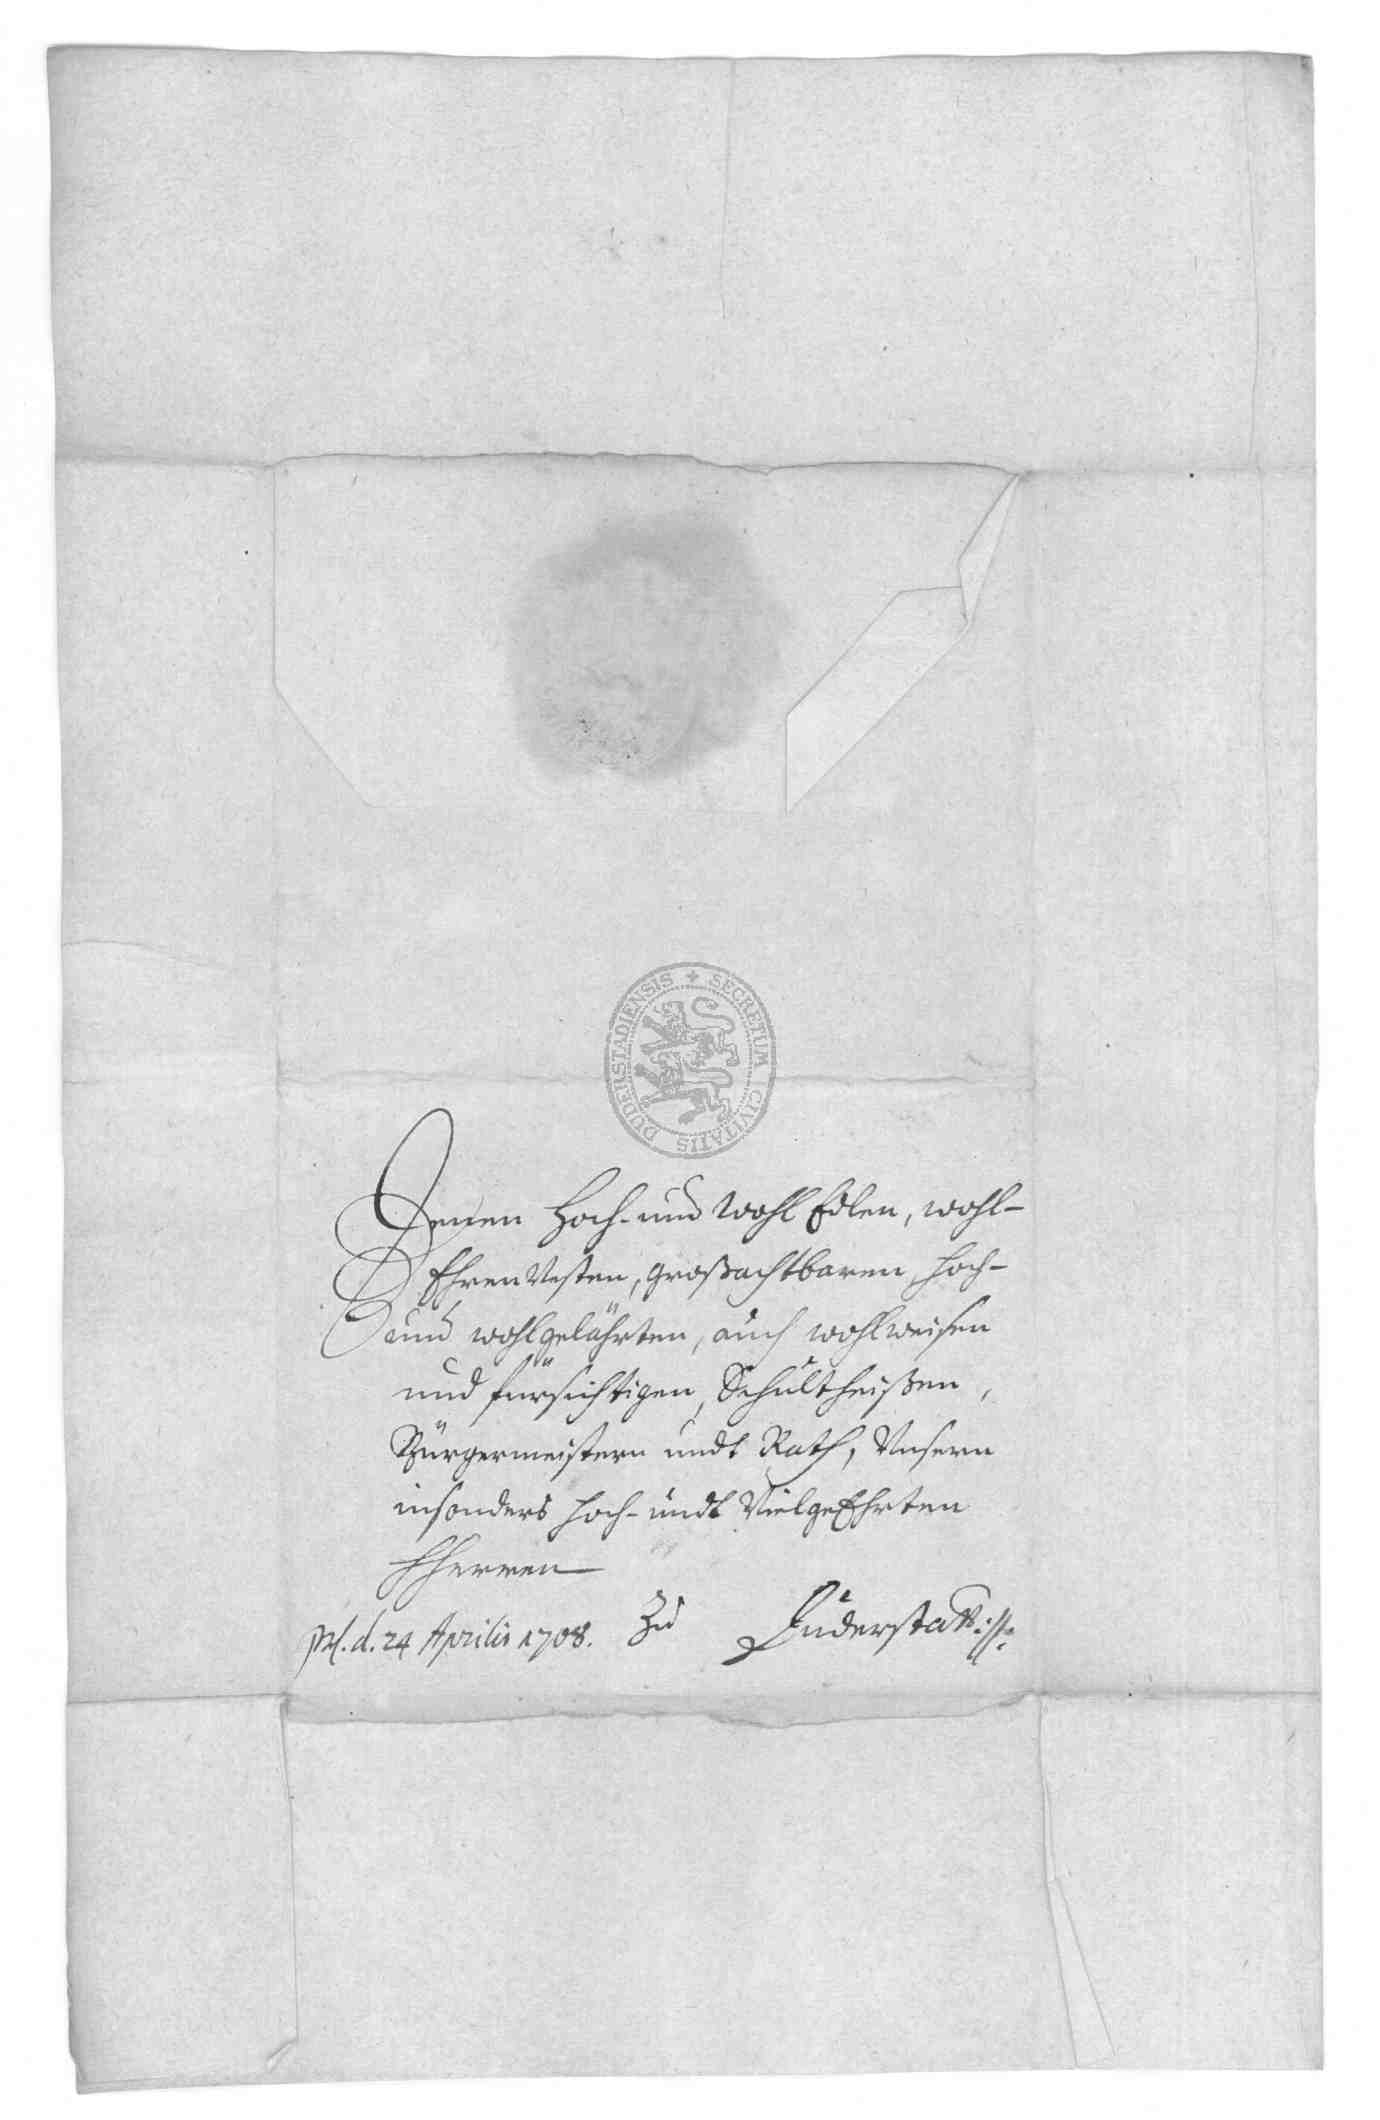 SECRETUM CIVITATIS DUDERSTADIENSIS
Denen Hoch- und Wohl Edlen, wohl-
Ehren Vesten, großachtbaren, hoch-
und wohlgelährten, auch wohlweisen
und fürsichtigen, Schultheißen,
Bürgermeistern undt Rath, Unsern
insonders hoch- undt VielgeEhrten
HHerren
Zu Duderstatt
d. 24 Aprilis 1708.